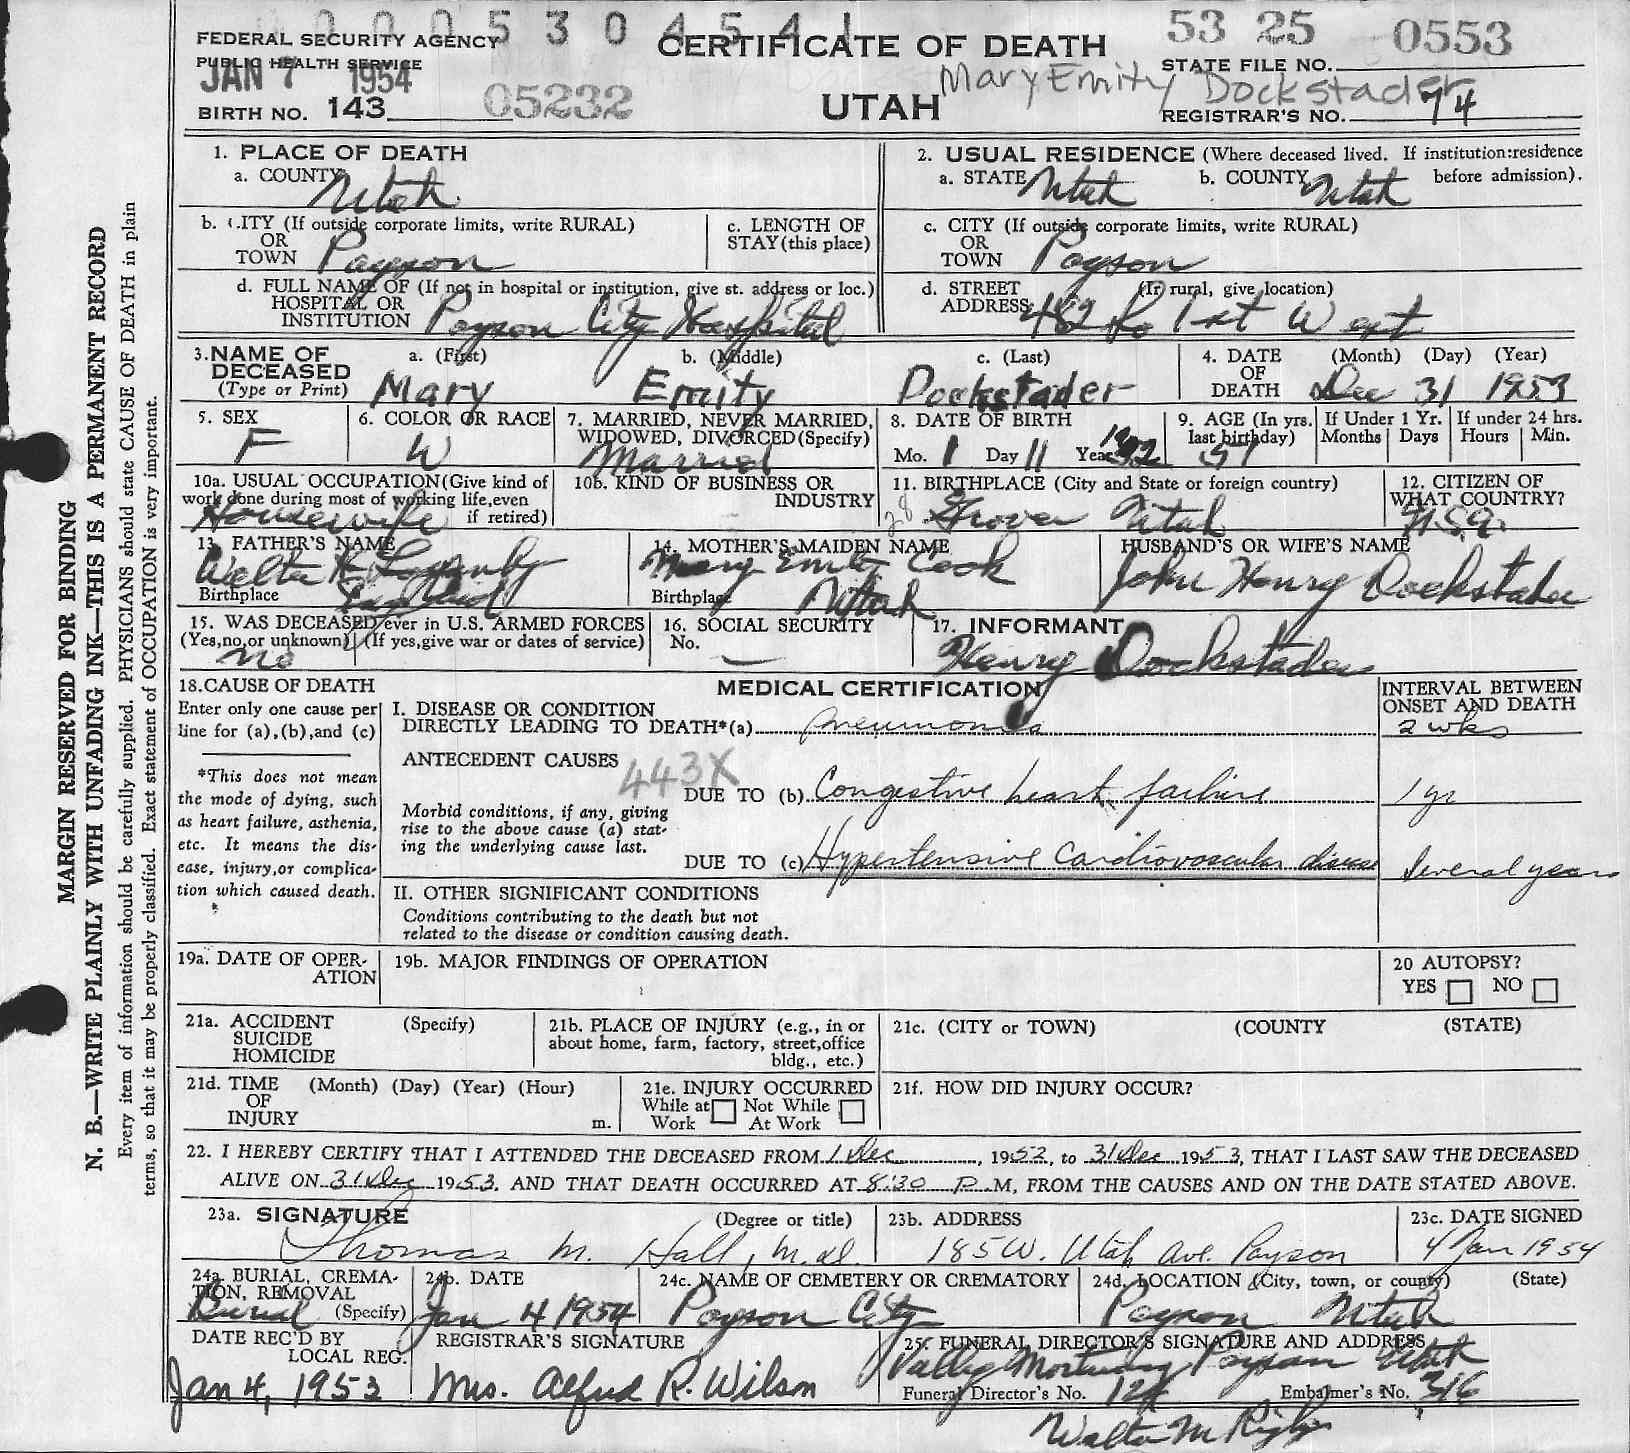 0 0 0 5 3 0 4 5 4 1
53 25 0553
FEDERAL SECURITY AGENCY
PUBLIC HEALTH SERVICE
JAN 7 1954
BIRTH NO. 143
05232
CERTIFICATE OF DEATH
UTAH
Mary Emity Dockstader
STATE FILE NO.
REGISTRAR'S NO. 74
1. PLACE OF DEATH
a. COUNTY Utah
b. CITY (If outside corporate limits, write RURAL)
OR
TOWN Payson
c. LENGTH OF
STAY (this place)
d. FULL NAME OF (If not in hospital or institution, give st. address or loc.)
HOSPITAL OR
INSTITUTION Payson City Hospital
2. USUAL RESIDENCE (Where deceased lived. If institution:residence
a. STATE Utah b. COUNTY Utah before admission).
c. CITY (If outside corporate limits, write RURAL)
OR
TOWN Payson
d. STREET (If rural, give location)
ADDRESS 482 So 1st West
3. NAME OF
DECEASED
(Type or Print)
a. (First) b. (Middle) c. (Last)
Mary Emity Dockstader
4. DATE (Month) (Day) (Year)
OF
DEATH Dec 31 1953
5. SEX
F
6. COLOR OR RACE
W
7. MARRIED, NEVER MARRIED,
WIDOWED, DIVORCED (Specify)
Married
8. DATE OF BIRTH
Mo. 1 Day 11 Year
9. AGE (In yrs.
last birthday)
If Under 1 Yr.
Months Days
If under 24 hrs.
Hours Min.
10a. USUAL OCCUPATION (Give kind of
work done during most of working life, even
if retired)
Housewife
10b. KIND OF BUSINESS OR
INDUSTRY
11. BIRTHPLACE (City and State or foreign country)
28 Grover Utah
12. CITIZEN OF
WHAT COUNTRY?
U.S.A.
13. FATHER'S NAME
Walter H
Birthplace England
14. MOTHER'S MAIDEN NAME
Mary Emity Cook
Birthplace Utah
HUSBAND'S OR WIFE'S NAME
John Henry Dockstader
15. WAS DECEASED ever in U.S. ARMED FORCES
(Yes, no, or unknown) (If yes, give war or dates of service)
no
16. SOCIAL SECURITY
No. —
17. INFORMANT
Henry Dockstader
18. CAUSE OF DEATH
Enter only one cause per
line for (a), (b), and (c)
*This does not mean
the mode of dying, such
as heart failure, asthenia,
etc. It means the dis-
ease, injury, or complica-
tion which caused death.
*
MEDICAL CERTIFICATION
I. DISEASE OR CONDITION
DIRECTLY LEADING TO DEATH*(a) pneumonia
ANTECEDENT CAUSES
443X
Morbid conditions, if any, giving
rise to the above cause (a) stat-
ing the underlying cause last.
DUE TO (b) Congestive heart failure
DUE TO (c) Hypertensive Cardiovascular disease
INTERVAL BETWEEN
ONSET AND DEATH
2 wks
1 yr
Several years
II. OTHER SIGNIFICANT CONDITIONS
Conditions contributing to the death but not
related to the disease or condition causing death.
19a. DATE OF OPER-
ATION
19b. MAJOR FINDINGS OF OPERATION
20 AUTOPSY?
YES NO
21a. ACCIDENT (Specify)
SUICIDE
HOMICIDE
21b. PLACE OF INJURY (e.g., in or
about home, farm, factory, street, office
bldg., etc.)
21c. (CITY or TOWN) (COUNTY (STATE)
21d. TIME (Month) (Day) (Year) (Hour)
OF
INJURY m.
21e. INJURY OCCURRED
While at Not While
Work At Work
21f. HOW DID INJURY OCCUR?
22. I HEREBY CERTIFY THAT I ATTENDED THE DECEASED FROM 1 Dec, 1952, to 31 Dec 1953, THAT I LAST SAW THE DECEASED
ALIVE ON 31 Dec 1953. AND THAT DEATH OCCURRED AT 8:30 P.M, FROM THE CAUSES AND ON THE DATE STATED ABOVE.
23a. SIGNATURE (Degree or title)
Thomas M. Hall, M.D.
23b. ADDRESS
185 W. Utah Ave. Payson
23c. DATE SIGNED
4 Jan 1954
24a. BURIAL, CREMA-
TION, REMOVAL
Burial (Specify)
24b. DATE
Jan 4 1954
24c. NAME OF CEMETERY OR CREMATORY
Payson City
24d. LOCATION (City, town, or county) (State)
Payson Utah
DATE REC'D BY
LOCAL REG.
Jan 4, 1953
REGISTRAR'S SIGNATURE
Mrs. Alfred R. Wilson
25. FUNERAL DIRECTOR'S SIGNATURE AND ADDRESS
Valley Mortuary Payson Utah
Funeral Director's No. Embalmer's No. 316
Walter M
MARGIN RESERVED FOR BINDING
N. B.—WRITE PLAINLY WITH UNFADING INK—THIS IS A PERMANENT RECORD
Every item of information should be carefully supplied. PHYSICIANS should state CAUSE OF DEATH in plain
terms, so that it may be properly classified. Exact statement of OCCUPATION is very important.